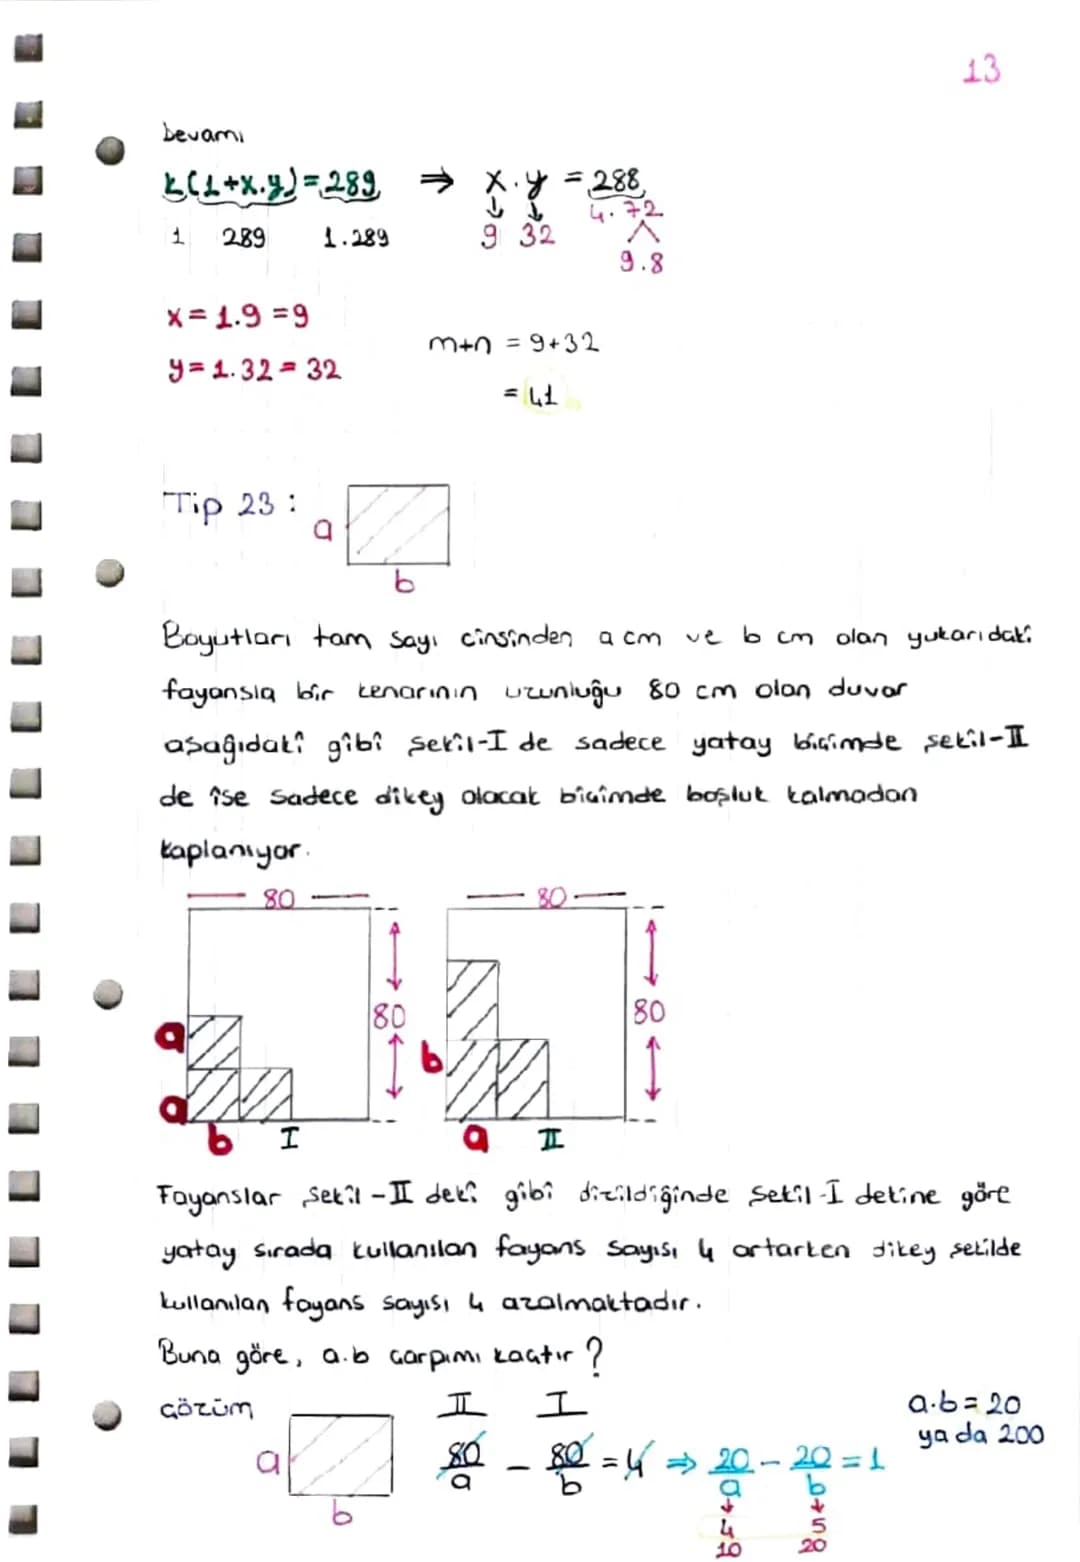 13
Devamı
k(1+x.y)=289 ⇒ x.y = 288
1 289 1.289 9 32 4.72
9.8
x = 1.9 = 9
y = 1.32 = 32
m+n = 9+32
= 41
Tip 23 :
a
b
Boyutları tam sayı cinsinden a cm ve b cm olan yukarıdaki
fayansla bir kenarının uzunluğu 80 cm olan duvar
aşağıdaki gibi şekil-I de sadece yatay biçimde şekil-II
de ise sadece dikey olacak biçimde boşluk kalmadan
kaplanıyor.
80 80
80 80
a
a
b I
b
a II
Fayanslar şekil-II deki gibi dizildiğinde şekil-I dekine göre
yatay sırada kullanılan fayans sayısı 4 artarken dikey şekilde
kullanılan fayans sayısı 4 azalmaktadır.
Buna göre, a.b çarpımı kaçtır ?
Çözüm
a
b
II I
80/a - 80/b = 4 ⇒ 20/a - 20/b = 1
4 5
10 20
a.b = 20
ya da 200